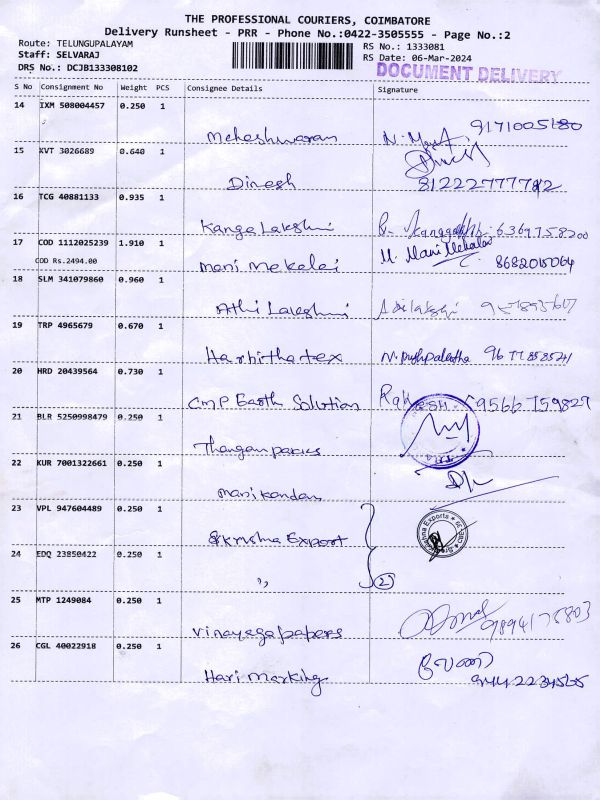 THE PROFESSIONAL COURIERS, COIMBATORE
Delivery Runsheet - PRR - Phone No.:0422-3505555 - Page No.:2
Route: TELUNGUPALAYAM
RS No.: 1333081
Staff: SELVARAJ
RS Date: 06-Mar-2024
DRS No.: DCJB133308102
DOCUMENT DELIVERY
S No Consignment No Weight PCS Consignee Details Signature
14 IXM 508004457 0.250 1
Maheshwaran 9171005180
15 KVT 3026689 0.640 1
Dinesh
16 TCG 40881133 0.935 1
Kanga Lakshmi
17 COD 1112025239 1.910 1
COD Rs.2494.00
Mani Mekalai M. Mani Mekalai 8682015064
18 SLM 341079860 0.960 1
Athi Lakshmi
19 TRP 4965679 0.670 1
Harhitha tex N. Pushpalatha
20 HRD 20439564 0.730 1
CMP Earth Solution 9566759829
21 BLR 5250998479 0.250 1
Thangam
22 KUR 7001322661 0.250 1
Manikandan
23 VPL 947604489 0.250 1
Srikrishna Export
24 EDQ 23850422 0.250 1
,, 2
25 MTP 1249084 0.250 1
Vinayaga papers 9894176803
26 CGL 40022918 0.250 1
Hari Marking